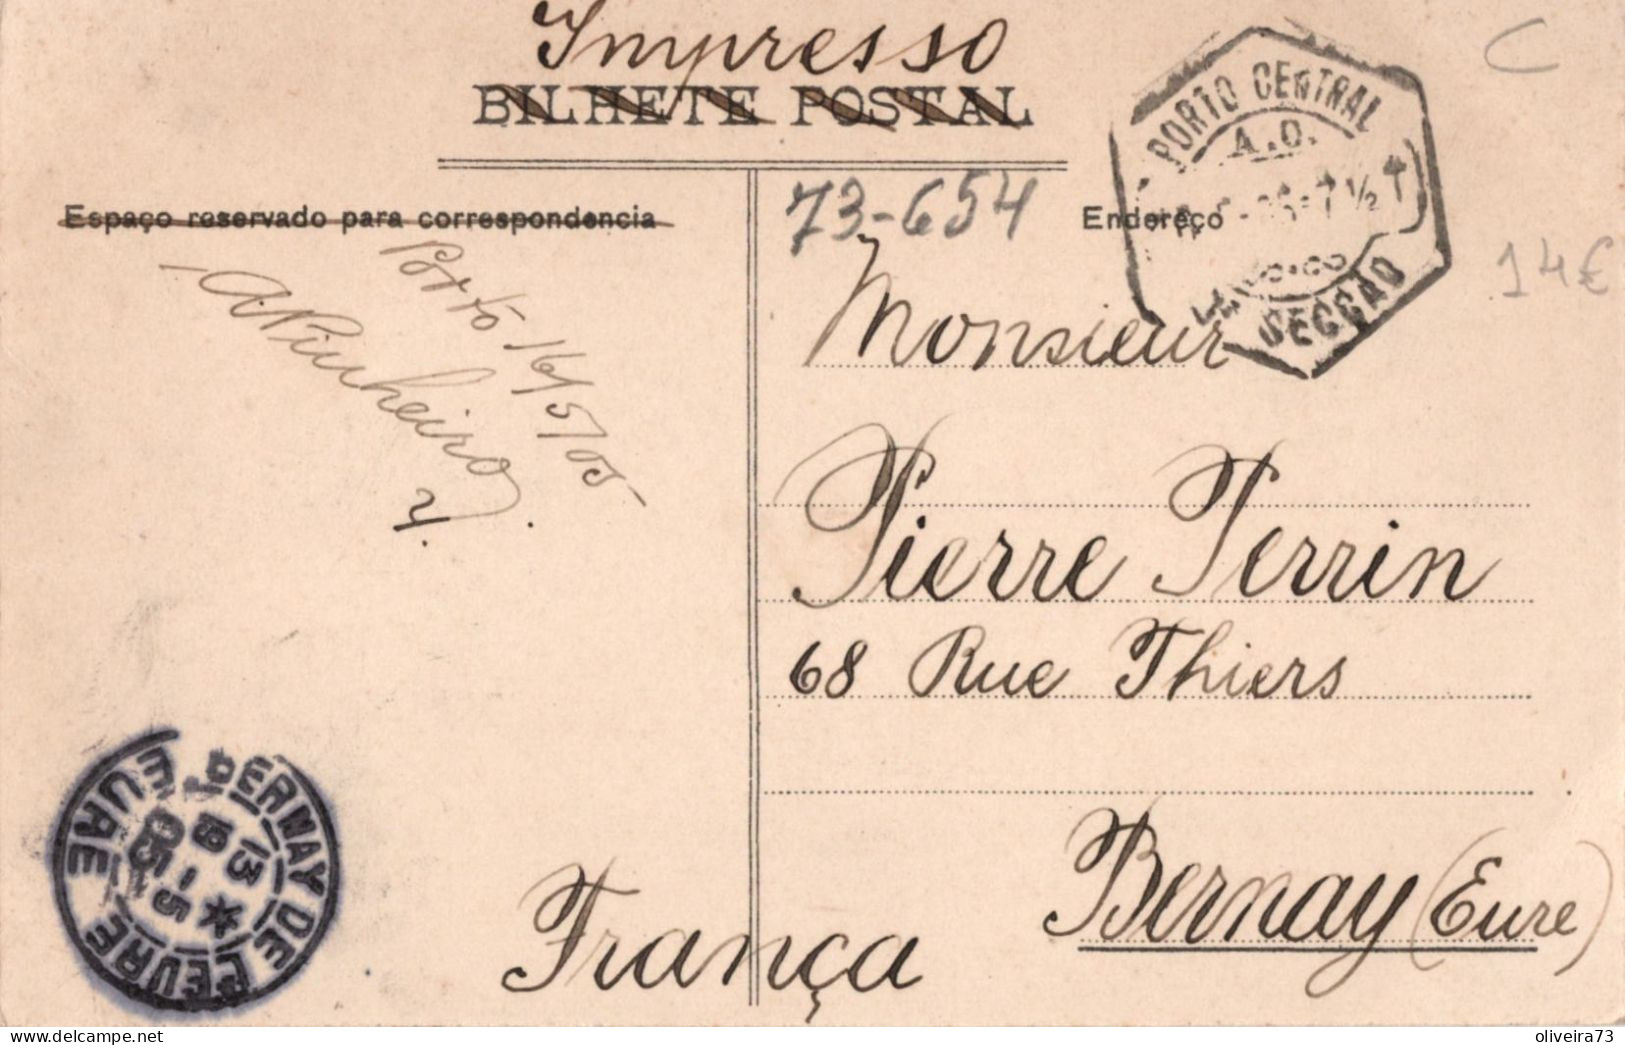 Impresso
BILHETE POSTAL
C
PORTO CENTRAL
A.O.
7 1/2 T
SECÇÃO
Espaço reservado para correspondencia
73-654
Endereço
14€
Porto 16/5/05
A Pinheiro
Monsieur
Pierre Perrin
68 Rue Thiers
Bernay (Eure)
França
BERNAY DE L'EURE
EURE
13 *
19 - 5
05
oliveira73